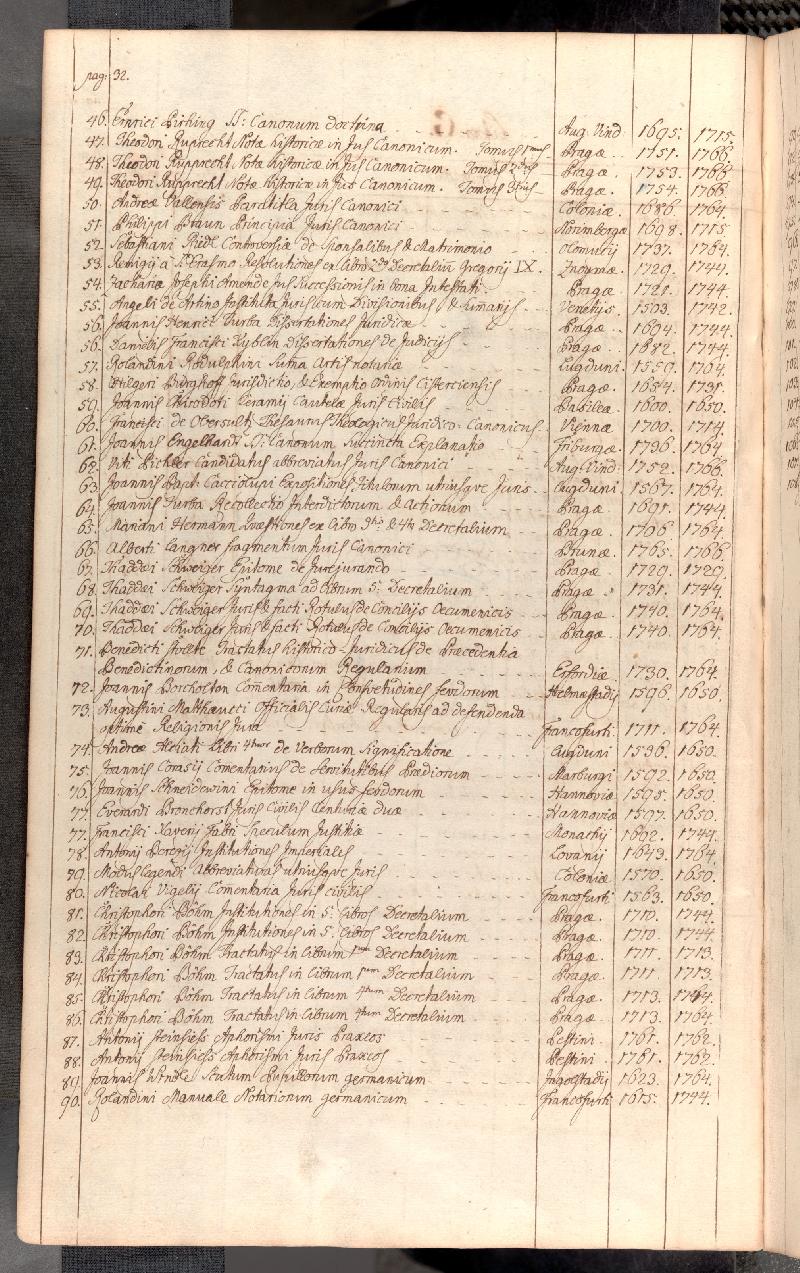 pag: 32.
46. Enrici Pirhing SS: Canonum doctrina Aug: Vind: 1695. 1715.
47. Theodori Rupprecht Notæ historicæ in Jus Canonicum. Tomus 1mus Pragæ 1751. 1766.
48. Theodori Rupprecht Notæ historicæ in Jus Canonicum. Tomus 2dus Pragæ 1753. 1766.
49. Theodori Rupprecht Notæ historicæ in Jus Canonicum. Tomus 3tius Pragæ 1754. 1766.
50. Andreæ Vallensis Paratitla Juris Canonici Coloniæ 1686. 1764.
51. Philippi Braun Principia Juris Canonici Norimbergæ 1698. 1715.
52. Sebastiani Riedl Controversiæ de Sponsalibus & Matrimonio Olomucij 1737. 1764.
53. Remigij à S: Erasmo Resolutiones ex Libro 2do Decretaliu Gregorij IX. Znoymæ 1729. 1744.
54. Zachariæ Josephi Amende Jus Successionis in bona Intestati Pragæ 1721. 1744.
55. Angeli de Aretino Jurisicum Divisionibus, & Sumarijs Venetijs 1503. 1742.
56. Joannis Henrici Turba Dissertationes Juridicæ Pragæ 1694. 1744.
56. Danielis Francisci Xyblin Dissertationes de Judicijs Pragæ 1682. 1744.
57. Rolandini Rodulphini Suma Artis notariæ Lugduni 1559. 1764.
58. Hilgeri Burghoff Jurisdictio, & Exemptio Ordinis Cisterciensis Pragæ 1654. 1731.
59. Joannis Ceramij Cautelæ Juris Civilis Basileæ 1600. 1650.
60. Francisci de Oberfultz Thesaurus Theologicus Juridico-Canonicus Viennæ 1700. 1714.
61. Joannis Engelhardi SS: Canonum Succincta Explanatio Friburgæ 1736. 1764.
62. Viti Pichler Candidatus abbreviatus Juris Canonici Aug: Vind: 1752. 1766.
63. Joannis Bapt: Caccialupi Expositiones Titulorum utriusque Juris Lugduni 1567. 1764.
64. Joannis Turba Recollectio Interdictorum & Actionum Pragæ 1691. 1744.
65. Mariani Hermann Quæstiones ex Libro 3tio & 4to Decretalium Pragæ 1706. 1764.
66. Alberti Langner fragmentum Juris Canonici Brunæ 1765. 1766.
67. Thaddæi Schweiger Epitome de Jurejurando Pragæ 1729. 1729.
68. Thaddæi Schweiger Syntagma ad Librum 5: Decretalium Pragæ 1731. 1744.
69. Thaddæi Schweiger Juris & facti Rotulus de Concilijs Oecumenicis Pragæ 1740. 1764.
70. Thaddæi Schweiger Juris & facti Rotulus de Concilijs Oecumenicis Pragæ 1740. 1764.
71. Benedicti Tractatus historico-Juridicus de Præcedentia
Benedictinorum, & Canonicorum Regularium Erfordiæ 1730. 1764.
72. Joannis Borcholten Comentaria in Consvetudines feodorum Helmæstadij 1596. 1650.
73. Augustini Matthæucci Officialis Curiæ Regularis ad defendenda
optimè Religionis Jura Francofurti 1711. 1764.
74. Andreæ Alciati Libri 4tuor de Verborum significatione Lugduni 1536. 1650.
75. Joannis Corasij Comentarius de Servitutibus Prædiorum Marburgi 1592. 1650.
76. Joannis Schneidewini Epitome in usus feodorum Hannoviæ 1595. 1650.
77. Everardi Bronchorst Juris Civilis Centuriæ duæ Hannoviæ 1597. 1650.
77. Francisci Xaverij Fabri Speculum Justitiæ Monachij 1692. 1744.
78. Antonij Perezij Institutiones Imperiales Lovanij 1643. 1764.
79. Modus legendi Abbreviaturas utriusque Juris Coloniæ 1570. 1650.
80. Nicolai Vigelij Comentaria Juris civilis Francofurti 1563. 1650.
81. Christophori Böhm Institutiones in 5: Libros Decretalium Pragæ 1710. 1744.
82. Christophori Böhm Institutiones in 5: Libros Decretalium Pragæ 1710. 1744.
83. Christophori Böhm Tractatus in Librum 1mum Decretalium Pragæ 1711. 1713.
84. Christophori Böhm Tractatus in Librum 1mum Decretalium Pragæ 1711. 1713.
85. Christophori Böhm Tractatus in Librum 4tum Decretalium Pragæ 1713. 1764.
86. Christophori Böhm Tractatus in Librum 4tum Decretalium Pragæ 1713. 1764.
87. Antonij Steinsiess Aphorismi Juris Praxeos Pestini 1761. 1762.
88. Antonij Steinsiess Aphorismi Juris Praxeos Pestini 1761. 1762.
89. Joannis Scutum Pupillorum germanicum Ingolstadij 1623. 1764.
90. Rolandini Manuale Notariorum germanicum Francofurti 1615. 1744.